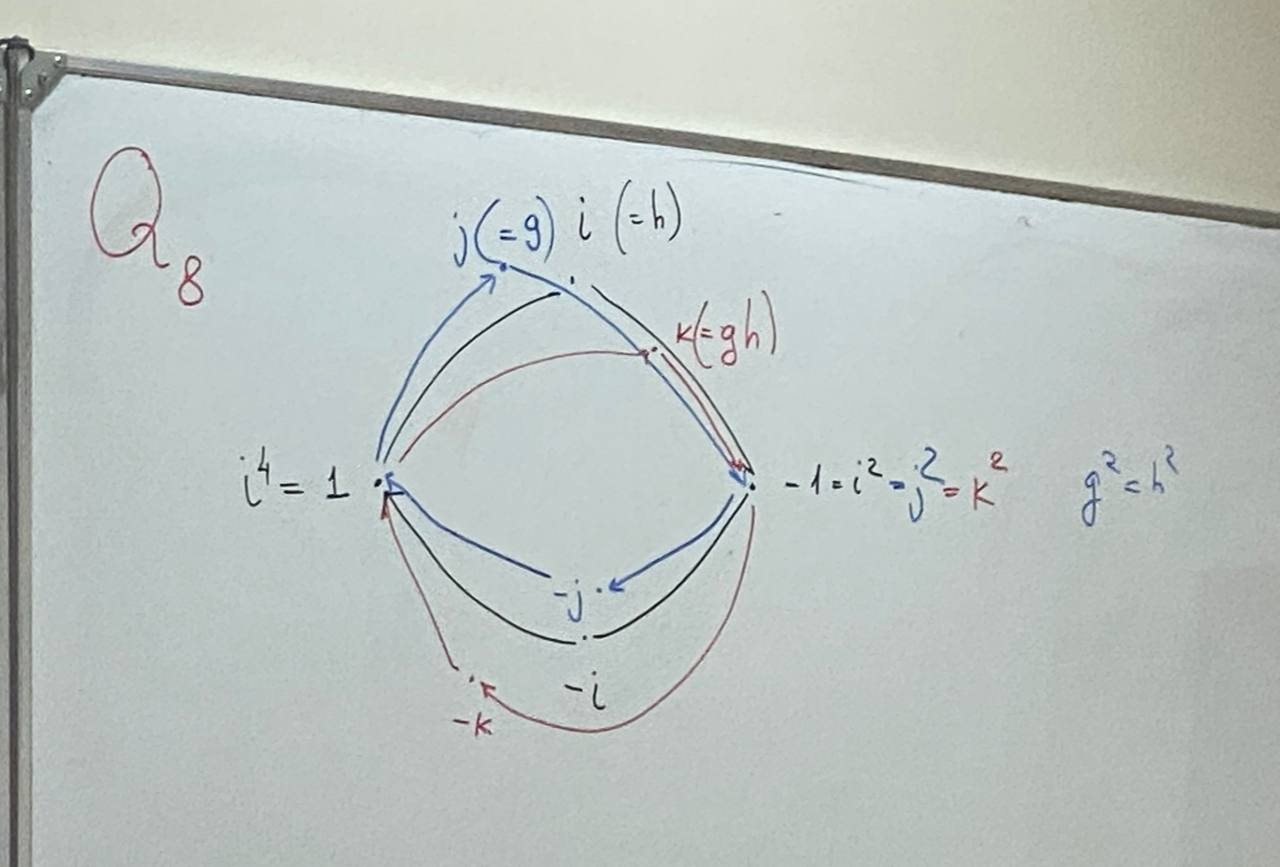 Q₈
j(=g) i (=h)
k(=gh)
i⁴ = 1 -1=i²=j²=k² g²=h²
-j
-i
-k